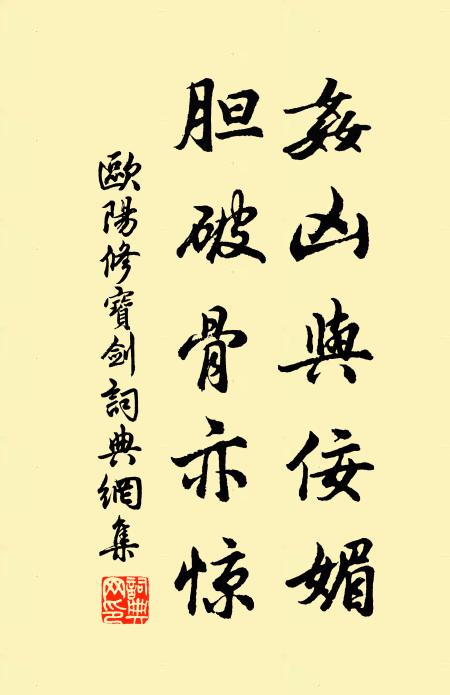 姦凶與佞媚
胆破骨亦惊
歐陽修寶劍詞典網集
詞典网印